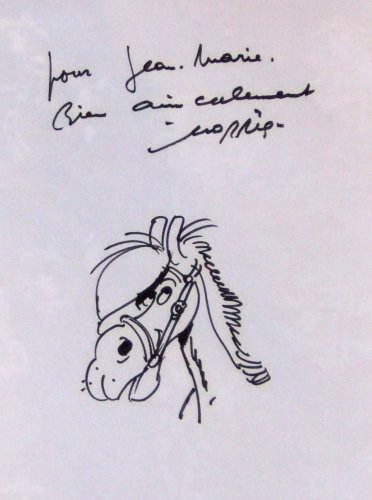 pour Jean-Marie.
Bien amicalement
-morris-